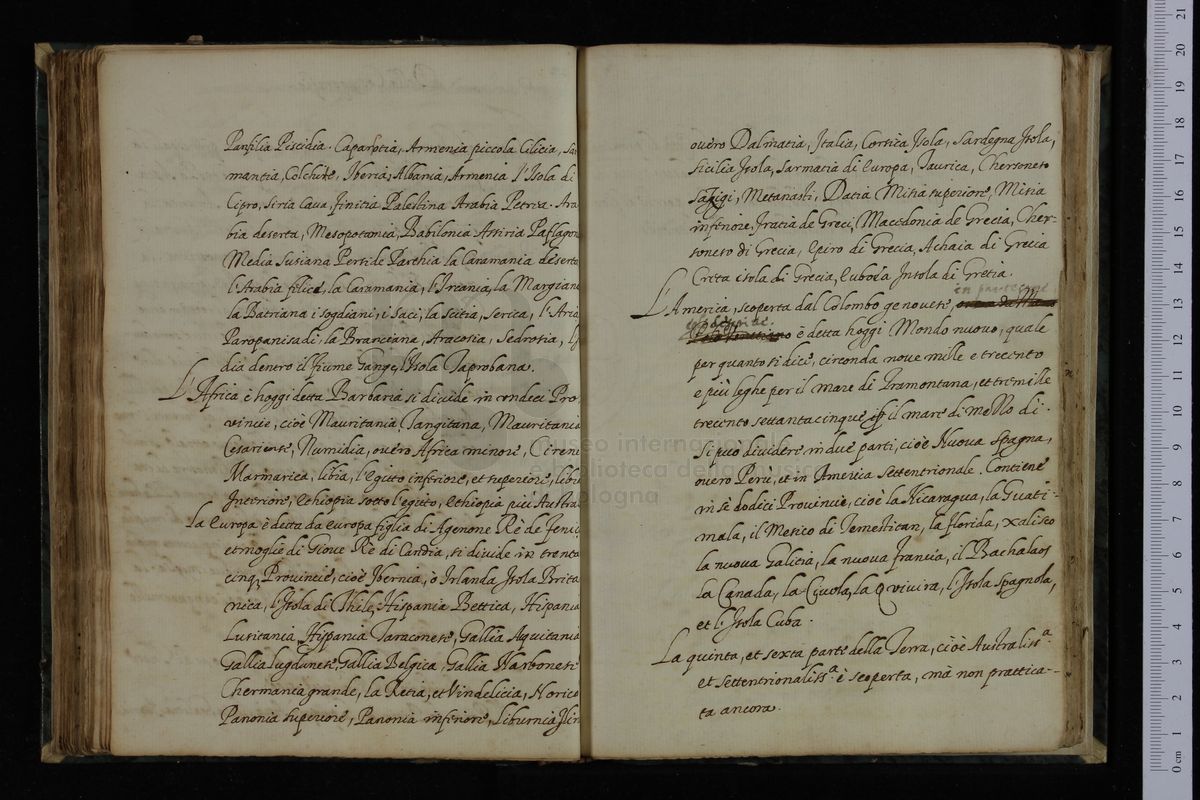 Panfilia Piscidia. Caparotia, Armenia piccola Cilicia, Sar
mantia, Colchite, Iberia, Albania, Armenia l'Isola di
Cipro, Siria Caua, finitia Palestina Arabia Petrea. Ara
bia deserta, Mesopotamia, Babilonia Assiria Paflagon
Media Susiana Perside Parthia la Caramania deserta
l'Arabia felice, la Caramania, l'Ircania, la Margiana
la Batriana i sogdiani, i Saci, la Scitia, Serica, l'Aria
Paropanisadi, la Branciana, Aracosia, Sedrosia,
dia dentro il fiume Gange, l'Isola Taprobana.
L'Africa è hoggi detta Barbaria si diuide in ondeci Pro
uincie, cioè Mauritania Tangitana, Mauritania
Cesariense, Numidia, ouero Africa minore, Cirene
Marmarica, libia, l'Egitto inferiore, et superiore, libia
Interiore, Ethiopia sotto l'egitto, Ethiopia più Austra
La Europa è detta da europa figlia di Agenone Rè de fenic
et moglie di Gioue Rè di Candia, si diuide in trenta
cinq. Prouincie, cioè Ibernia, ò Irlanda Isola Brita
nica, l'Isola di Thile, Hispania Bettica, Hispania
Lusitania, Hispania Taraconese, Gallia Aquitania
Gallia lugdunese, Gallia Belgica, Gallia Narbonese
Chermania grande, la Retia, et Vindelicia, Norico
Panonia superiore, Panonia inferiore, Liburnia
ouero Dalmatia, Italia, Corsica Isola, Sardegna Isola,
Sicilia Isola, Sarmacia di Europa, Taurica, Chersoneso
Metanasti, Datia Misia superiore, Misia
inferiore, Tracia de Greci, Macedonia de Grecia, Cher-
soneso di Grecia, Epiro di Grecia, Achaia di Grecia
Creta isola di Grecia, Euboia Insola di Gretia.
L'America, scoperta dal Colombo genouese,
in parte
è detta hoggi Mondo nuouo, quale
per quanto si dice, circonda noue mille e trecento
e più leghe per il mare di Tramontana, et tre mille
trecento settanta cinque il mare di mezzo dì.
Si può diuidere in due parti, cioè Nuoua Spagna,
ouero Perù, et in America Settentrionale. Contiene
in sè dodici Prouincie, cioè la Nicaragua, la Guati-
mala, il Mesico di Temestitan, la florida, Xalisco
la nuoua Galitia, la nuoua francia, il Bachalaos
la Canada, la Ciuola, la Qviuira, l'Isola Spagnola,
et l'Isola Cuba.
La quinta, et sexta parte della Terra, cioè Australiss.a
et Settentrionaliss.a è scoperta, mà non prattica-
ta ancora.
museo internazionale
e biblioteca della musica
bologna